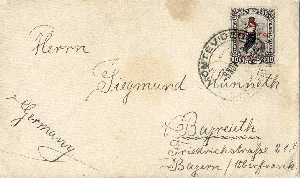 MONTEVIDEO
Herrn
Siegmund Hünneth
Germany
Bayreuth
Friedrichstraße 21 I
Bayern / Oberfrank.